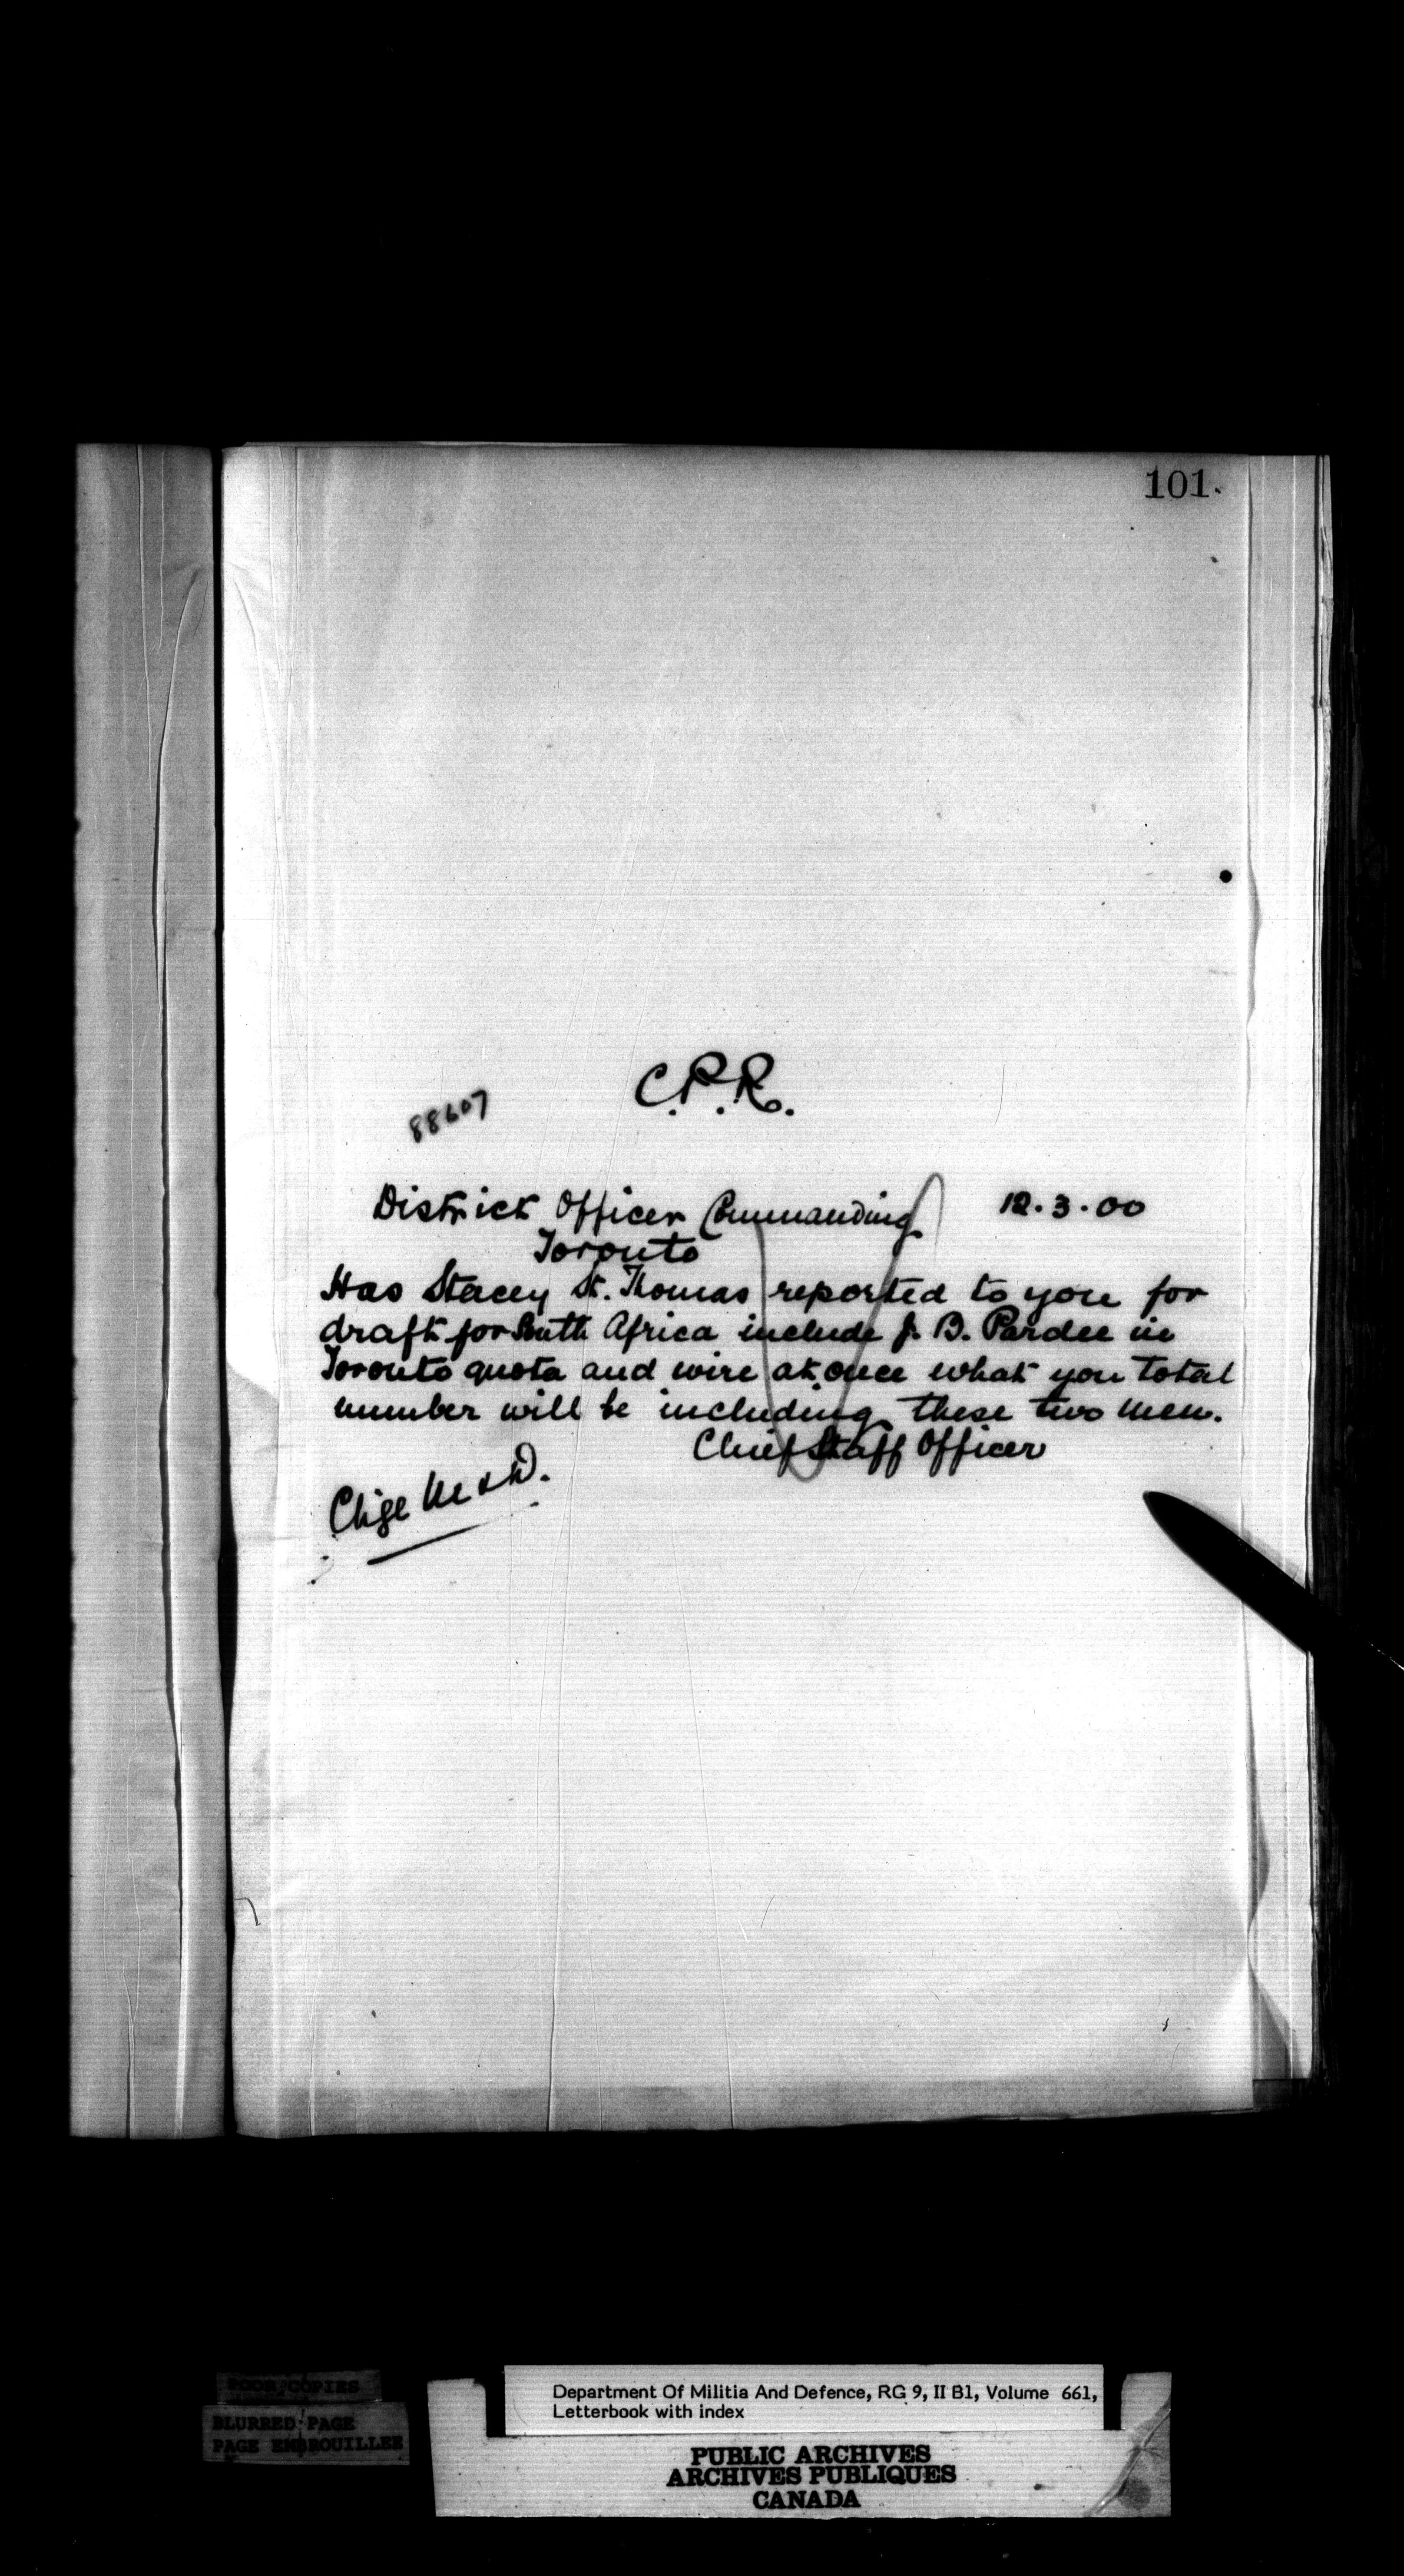 101.
C.P.R.
88607
District Officer Commanding 12.3.00
Toronto
Has Stacey St. Thomas reported to you for
draft for South Africa include J. B. Pardee in
Toronto quota and wire at once what you total
number will be including these two men.
Chief Staff Officer
Chge M & D.
POOR COPIES
BLURRED PAGE
PAGE EMBROUILLEE
Department Of Militia And Defence, RG 9, II B1, Volume 661,
Letterbook with index
PUBLIC ARCHIVES
ARCHIVES PUBLIQUES
CANADA